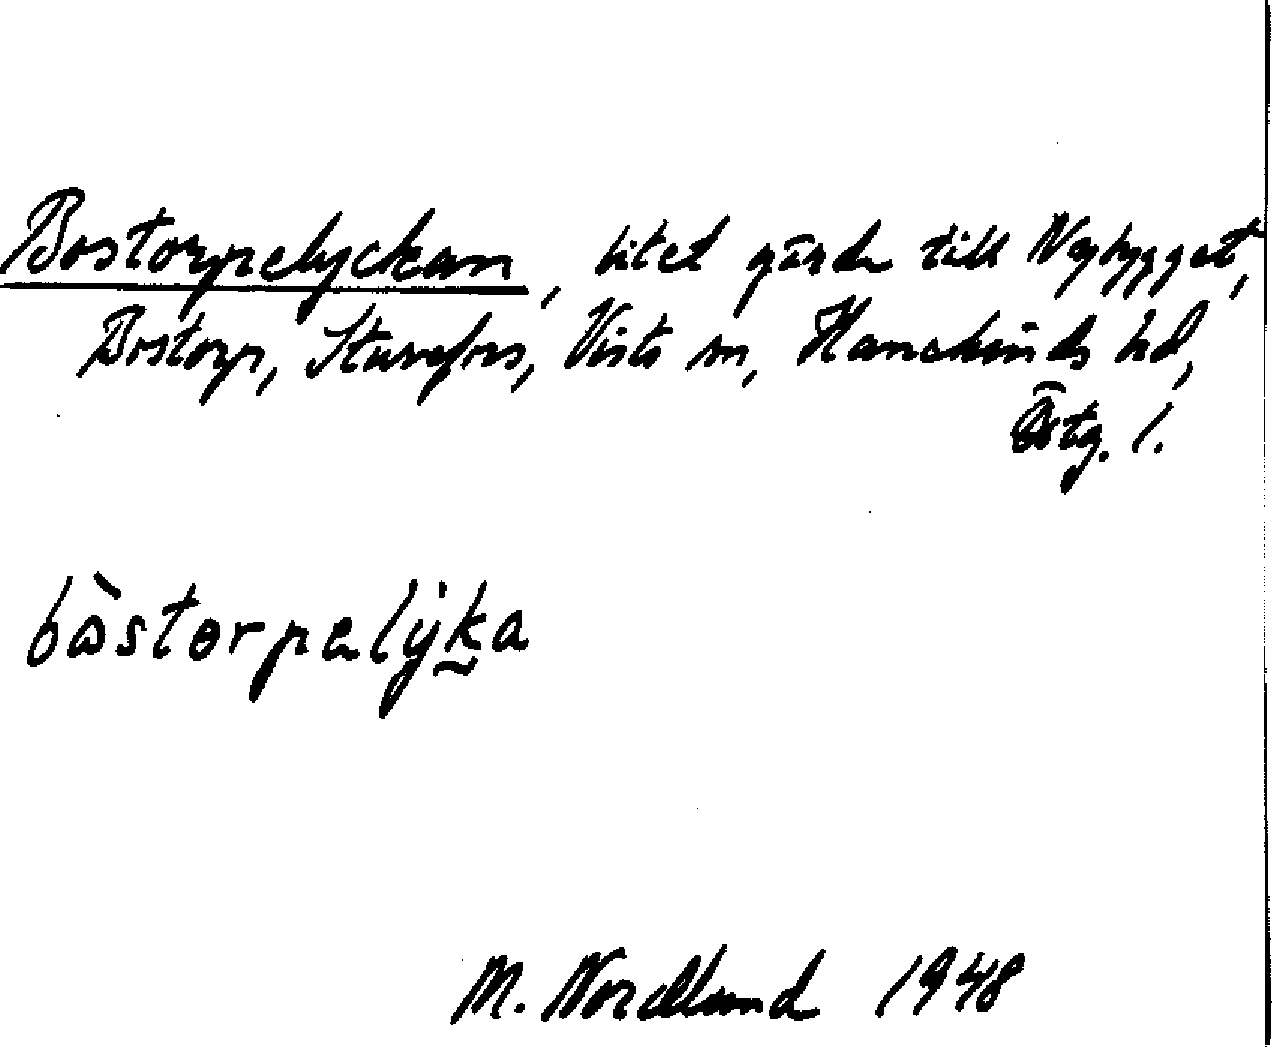 Bostorpelyckan, litet gärde till Nybygget,
Bostorp, Sturefors, Vists sn, Hanekinds hd,
Östg. l.
bòstorpelyka
M. Nordlund 1948